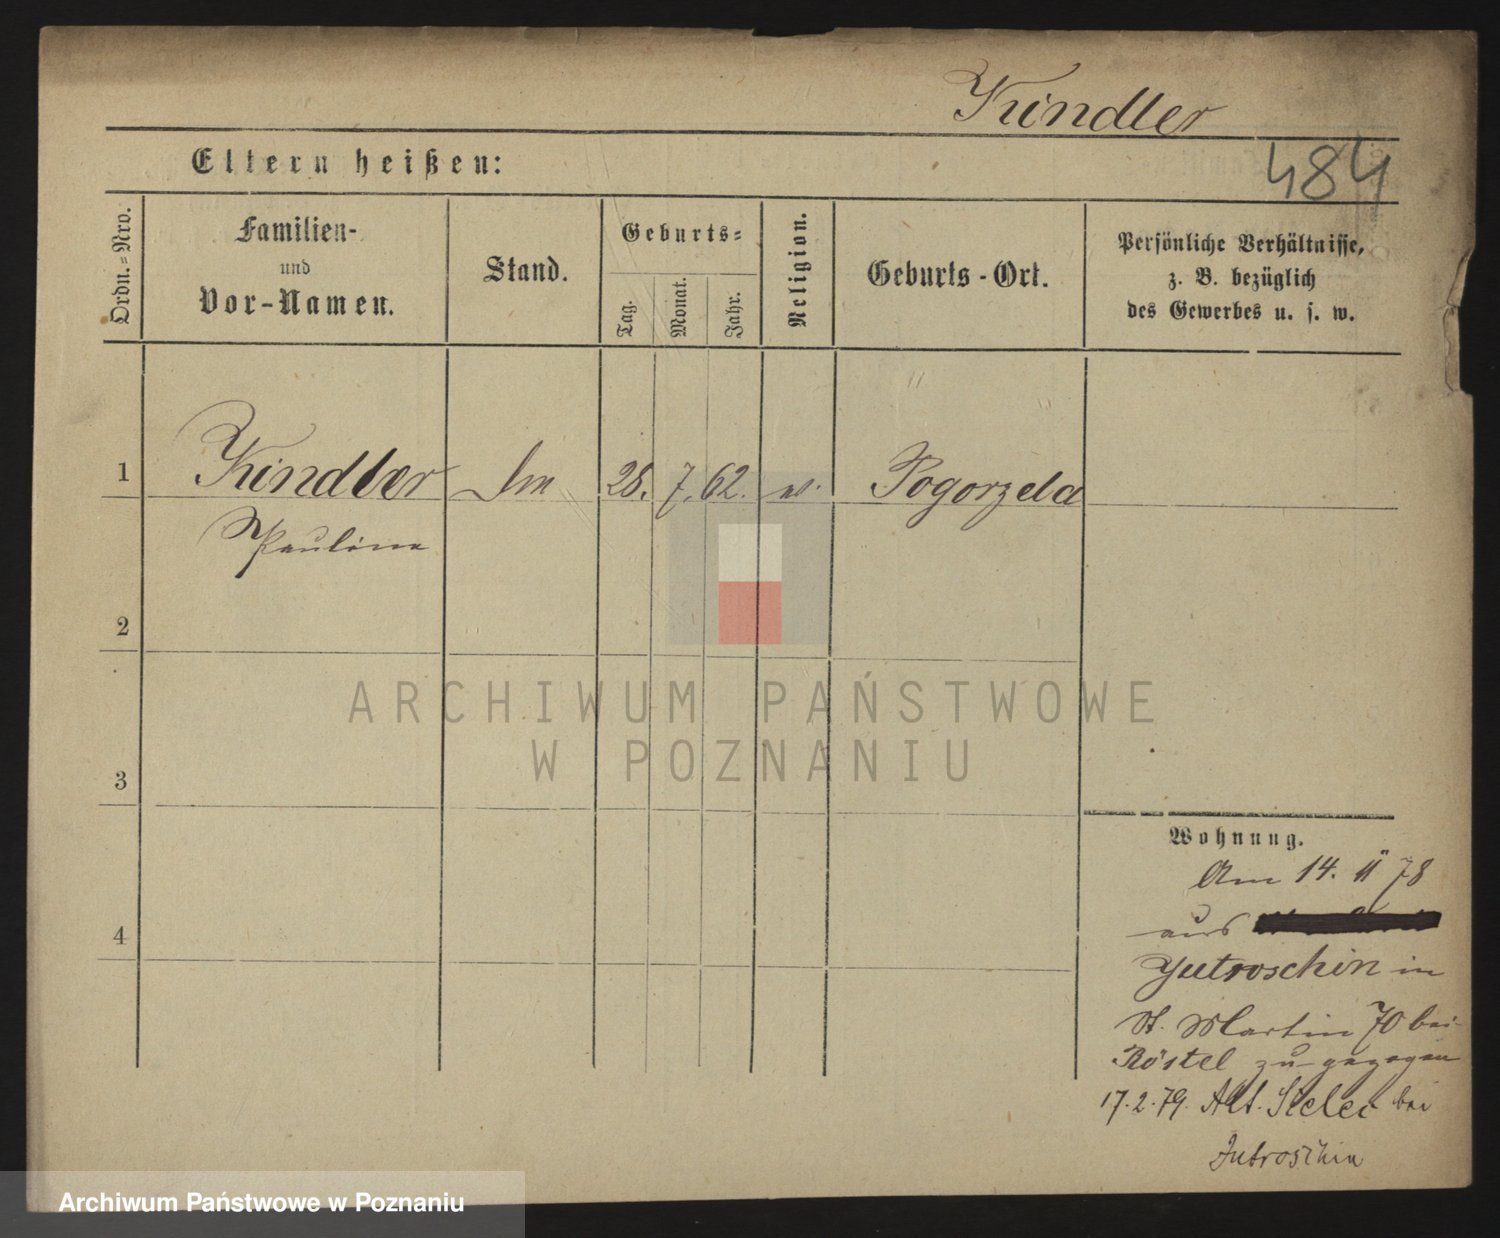 Kindler
484
Eltern heißen:
Ordn.-Nro.
Familien-
und
Vor-Namen.
Stand.
Geburts-
Tag.
Monat.
Jahr.
Religion.
Geburts-Ort.
Persönliche Verhältnisse,
z. B. bezüglich
des Gewerbes u. s. w.
1 Kindler 28. 7. 62. Pogorzela
Pauline
2
3
4
Wohnung.
Am 14. 11 78
aus
Jutroschin in
St. Martin 70 bei
Röstel zugezogen
17.2.79. Alt. bei
Jutroschin
ARCHIWUM PAŃSTWOWE
W POZNANIU
Archiwum Państwowe w Poznaniu